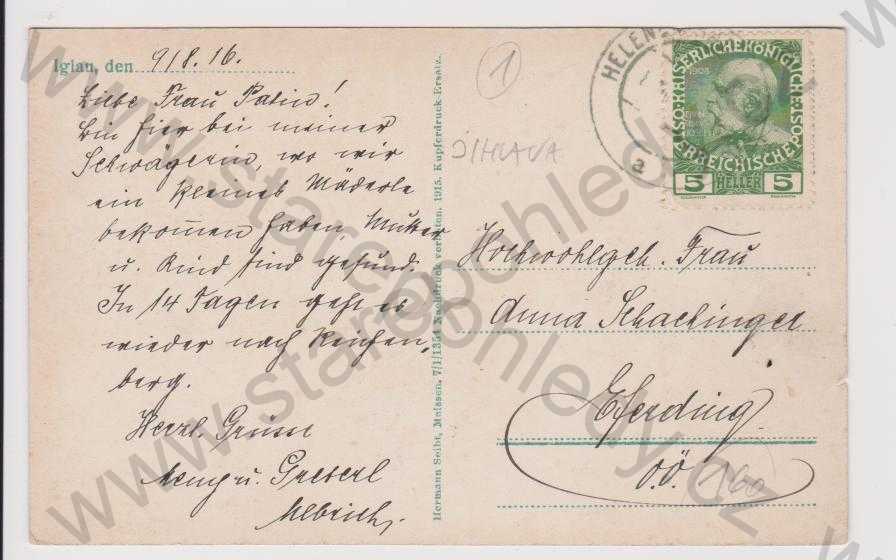 Iglau, den 9/8. 16.
Liebe Frau Patin!
Bin hier bei meiner
Schwägerin, wo wir
ein kleines Mäderle
bekommen haben, Mutter
u. Kind sind gesund.
In 14 Tagen geht es
wieder nach Reichen,
berg.
Herzl. Grüsse
u. Greterl
Ulbrich,
Hermann Seibt, Meissen, 7/1/1354 Nachdruck verboten, 1915. Kupferdruck-Ersatz.
1
JIHLAVA
HELEN
a
KAISERLICHE KÖNIGLICHE
ÖSTERREICHISCHE POST
1908
5 HELLER 5
Hochwohlgeb. Frau
Anna Schachinger
Eferding
O.Ö.
160
www.starepohledy.cz